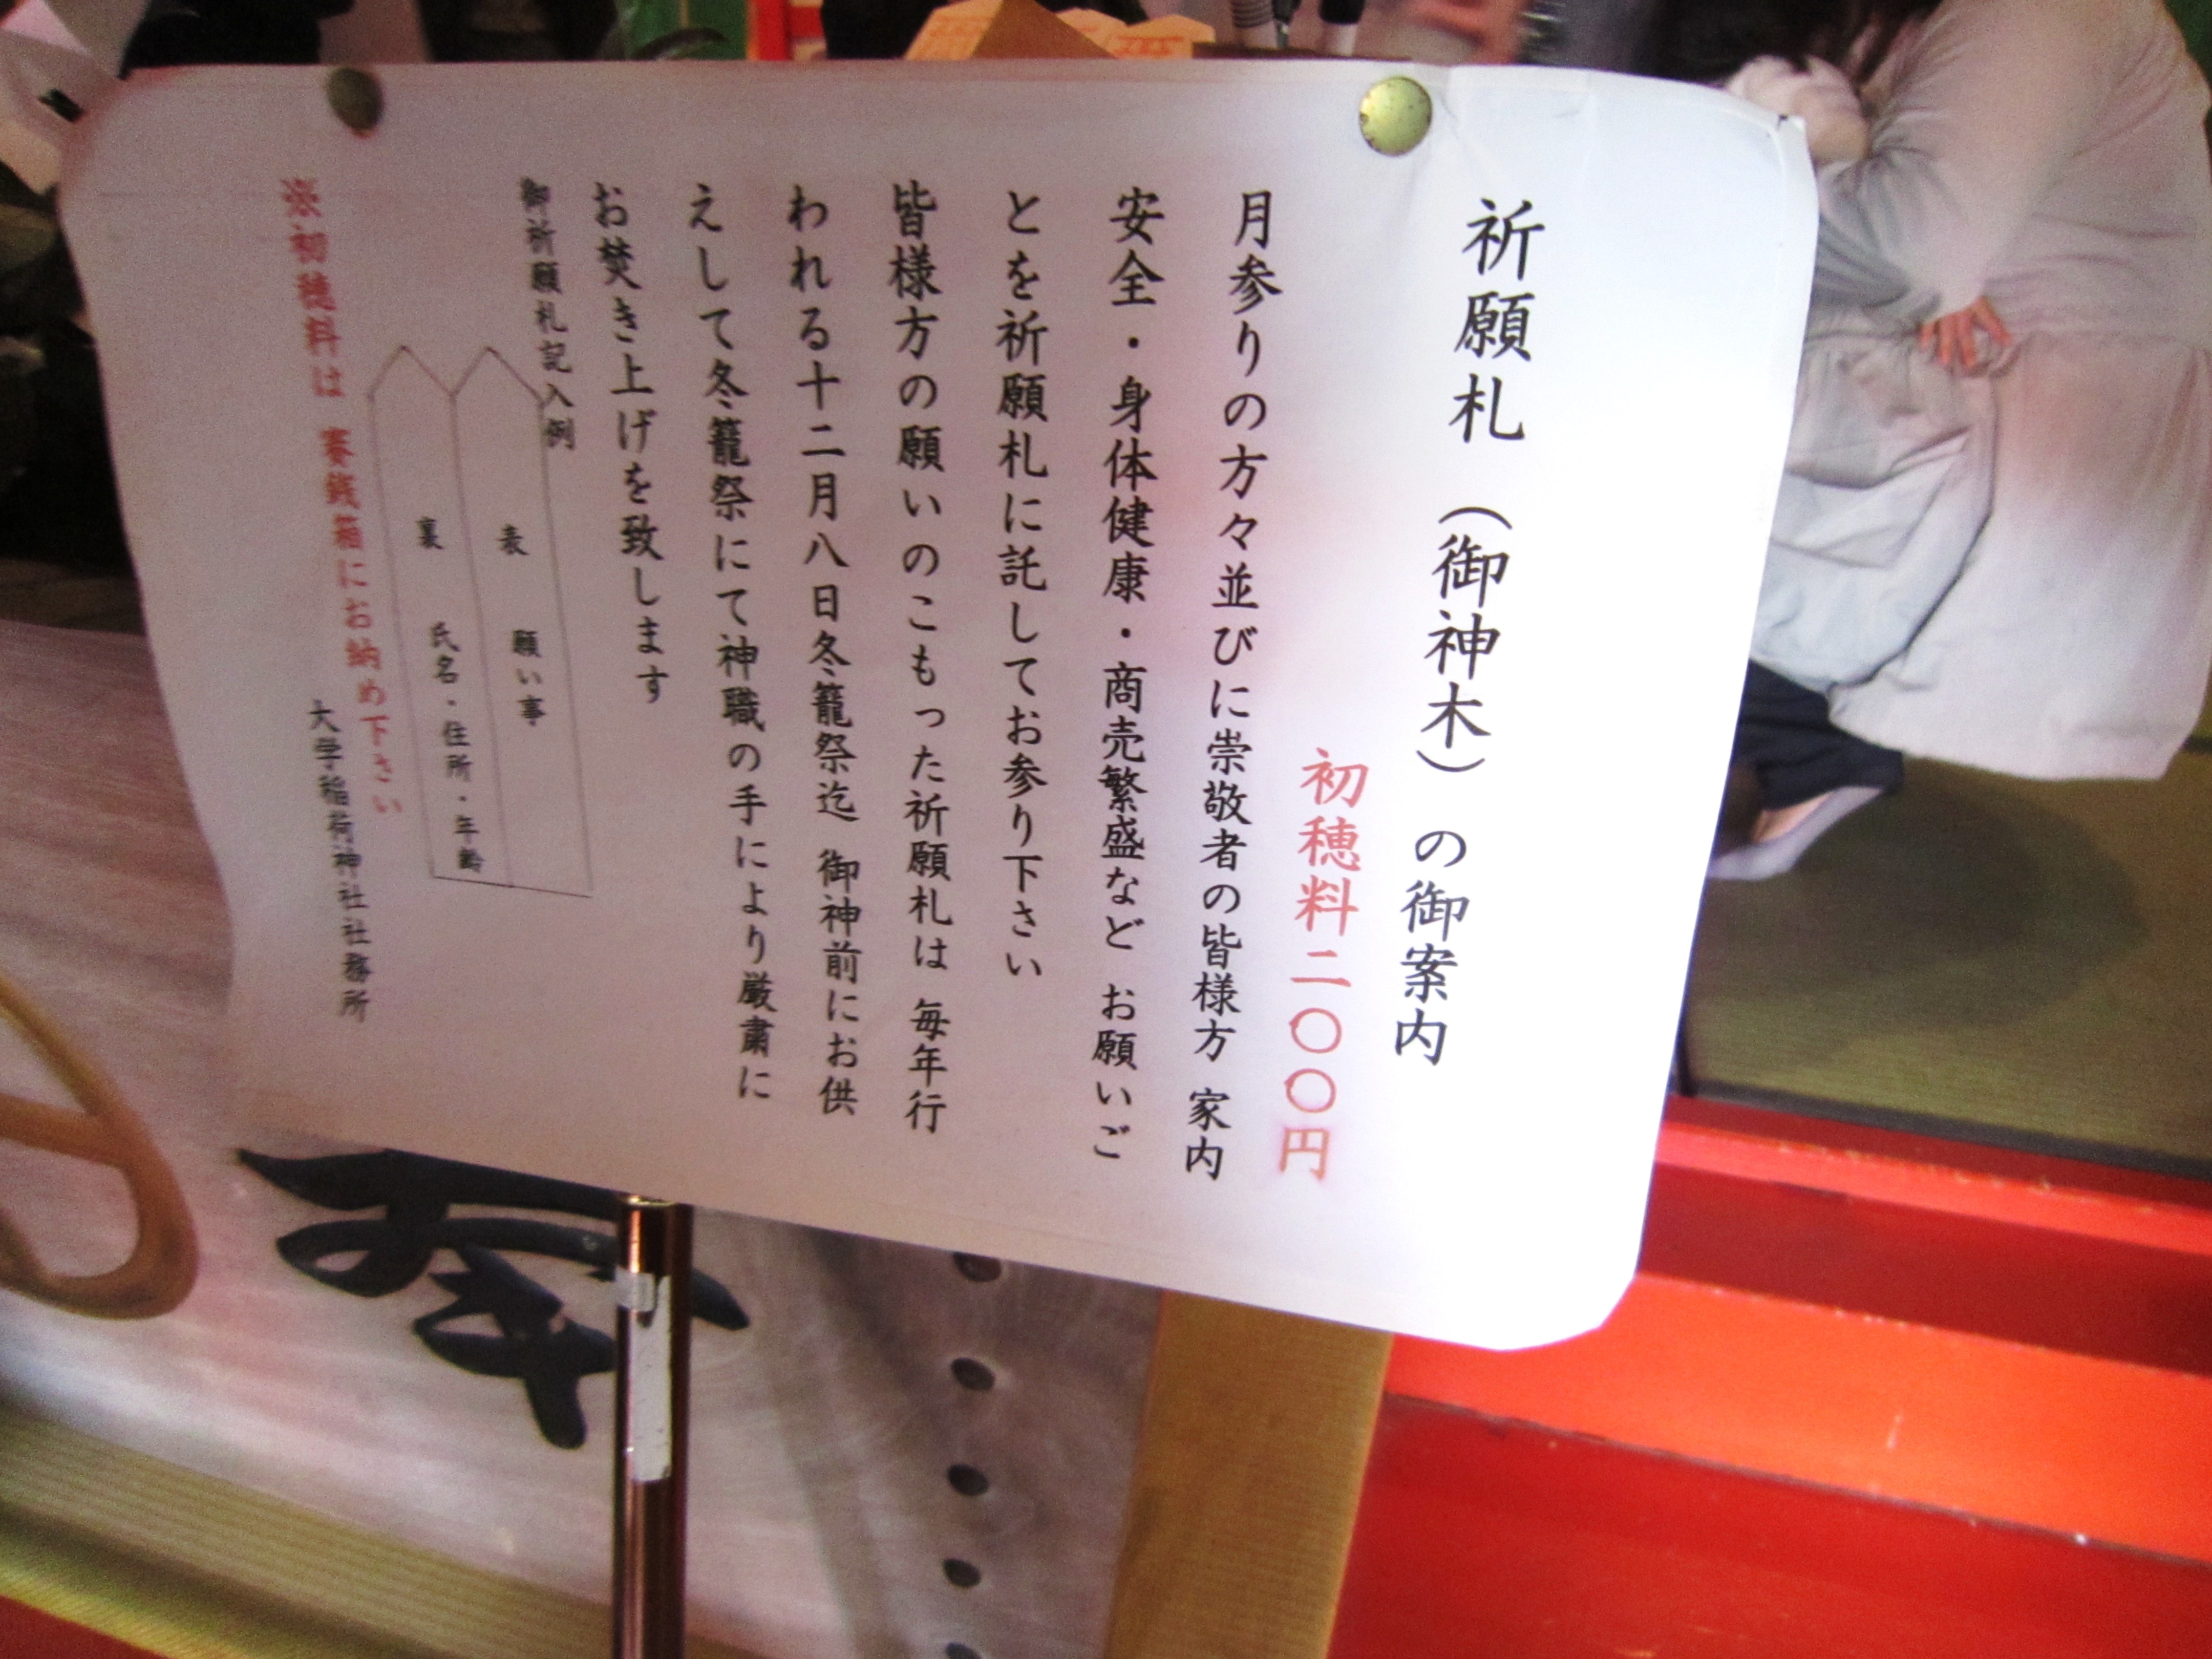 祈願札（御神木）の御案内
初穂料二〇〇円
月参りの方々並びに崇敬者の皆様方 家内
安全・身体健康・商売繁盛など お願いご
とを祈願札に託してお参り下さい
皆様方の願いのこもった祈願札は 毎年行
われる十二月八日冬籠祭迄 御神前にお供
えして冬籠祭にて神職の手により厳粛に
お焚き上げを致します
御祈願札記入例
表 願い事
裏 氏名・住所・年齢
※初穂料は 賽銭箱にお納め下さい
大学稲荷神社社務所